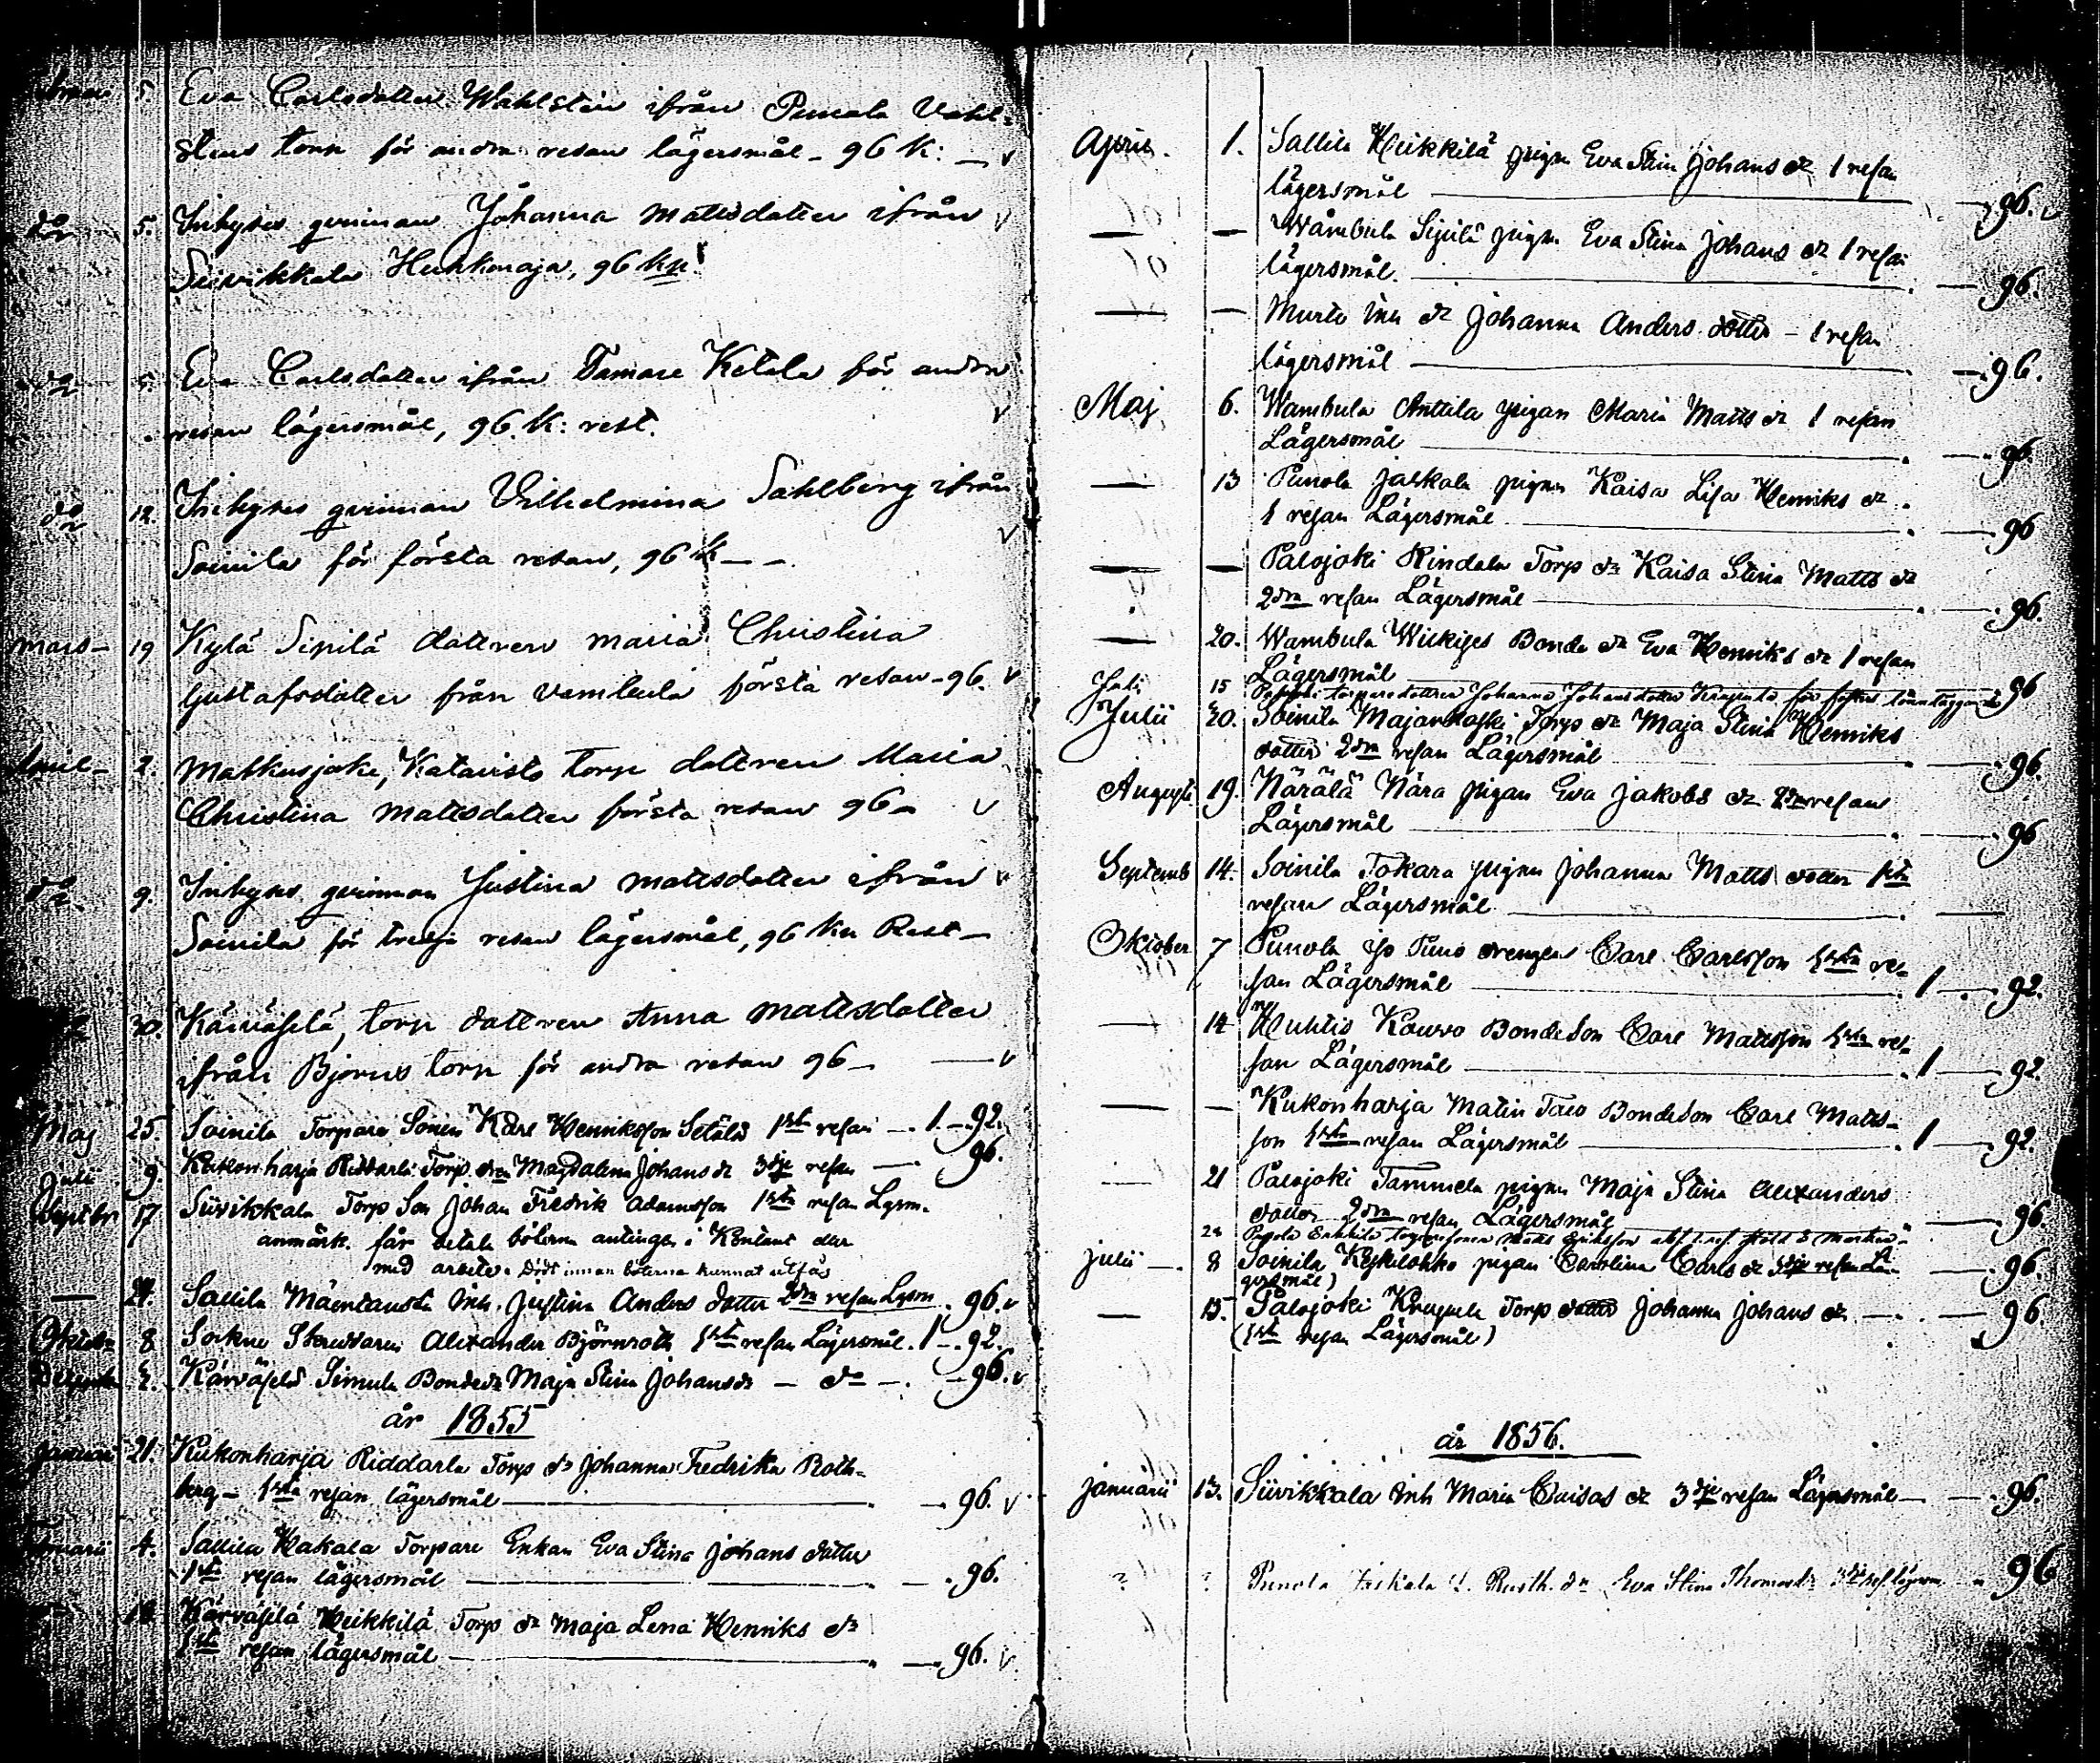 5. Eva Carlsdotter Wahlsten ifrån Punola Vahl=
stens torp för andra resan lägersmål - 96 K: —
do 5. Inhyses qvinnan Johanna Mattsdotter ifrån
Siivikkala Huhkmaja, 96 Kp.
do 5. Eva Carlsdotter ifrån Tamare Ketola för andra
resan lägersmål, 96. K: rest.
do 12. Inhyses qvinnan Vilhelmina Sahlberg ifrån
Soinila för första resan, 96 K — -
Mars - 19 Kylä Sipilä dottren Maria Christina
Gustafsdotter från Vambula första resan - 96.
April - 2. Matkusjoki, Katavisto torp dottren Maria
Christina Mattsdotter första resan 96 -
do 9. Inhyses qvinnan Justina Mattsdotter ifrån
Soinila för tredje resan lägersmål, 96 Kp Rest -
30. torp dottren Anna Mattsdotter
ifrån Björns torp för andra resan 96 - —
Maj 25. Soinila Torpare Sonen Karl Henriksson Setälä 1sta resan — 1. - 92.
Julii 9. Kukonharja Riddarla Torp Magdalena Johans dr 3dje resan — 96.
Septbr 17 Siivikkala Torp Son Johan Fredrik Adamsson 1sta resan Lgrm.
anmärk. får betala böterna antingen i Kontant eller
med arbete. Dödt innan böterna kunnat utfås
— 24. Sallila Mäentausta Inh. Justina Anders dotter 2dra resan Lgrm. 96.
8 Alexander Björnroth 1sta resan Lägersmål. 1 - 92.
Simula Bonde dr Maja Stina Johans dr — do — . - 96.
år 1855
Januari 21. Kukonharja Riddarla Torp dr Johanna Fredrika Roth=
berg - 1sta resan lägersmål — 96.
4. Sallila Hakala Torpare Enkan Eva Stina Johans dotter
1sta resan lägersmål — 96.
Heikkilä Torp dr Maja Lena Henriks dr
1sta resan lägersmål — 96.
April. 1. Sallila Heikkilä pigan Eva Stina Johans dr 1 resan
lägersmål — 96.
— — Wambula Sipilä pigan Eva Stina Johans dr 1 resan
lägersmål. — 96.
— — Murto Inh dr Johanna Anders dotter - 1 resan
lägersmål — 96.
Maj 6. Wambula Anttila pigan Maria Matts dr 1 resan
Lägersmål — 96.
— 13 Punola Jaskala pigan Kaisa Lisa Henriks dr
1 resan Lägersmål — 96
— — Palojoki Rindala Torp dr Kaisa Stina Matts dr
2dra resan Lägersmål — 96.
— 20. Wambula Bonde dr Eva Henriks dr 1 resan
Lägersmål — 96
Juli 15 torparedottren Johanna Johansdotter
Julii 20. Soinila Majankoski Torp dr Maja Stina Henriks
dotter 2dra resan Lägersmål — 96.
Augusti 19. Närälä Nära pigan Eva Jakobs dr 2dra resan
Lägersmål — 96
Septemb 14. Soinila Tokara pigan Johanna Matts dotter 1sta
resan Lägersmål — —
Oktober 7 Punola drengen Carl Carlsson 1sta re-
san Lägersmål — 1 — 92.
— 14 Huhtis Kauvo Bondeson Carl Mattsson 1sta re-
san Lägersmål — 1 — 92.
— — Kukonharja Matin Tavo Bondeson Carl Matts-
son 1sta resan Lägersmål — 1 — 92.
— 21 Palojoki Tammela pigan Maja Stina Alexanders
dotter 2dra resan Lägersmål — 96.
Matts Eriksson
Julii — 8 Soinila pigan Carolina Carls dr 3dje resan Lä-
gersmål) — 96.
— 15. Palojoki Torp dotter Johanna Johans dr — 96.
(1sta resan Lägersmål)
år 1856.
Januarii 13. Siivikkala Inh Maria Caisas dr 3dje resan Lägersmål — 96.
Punola Jaskala Eva Stina 96